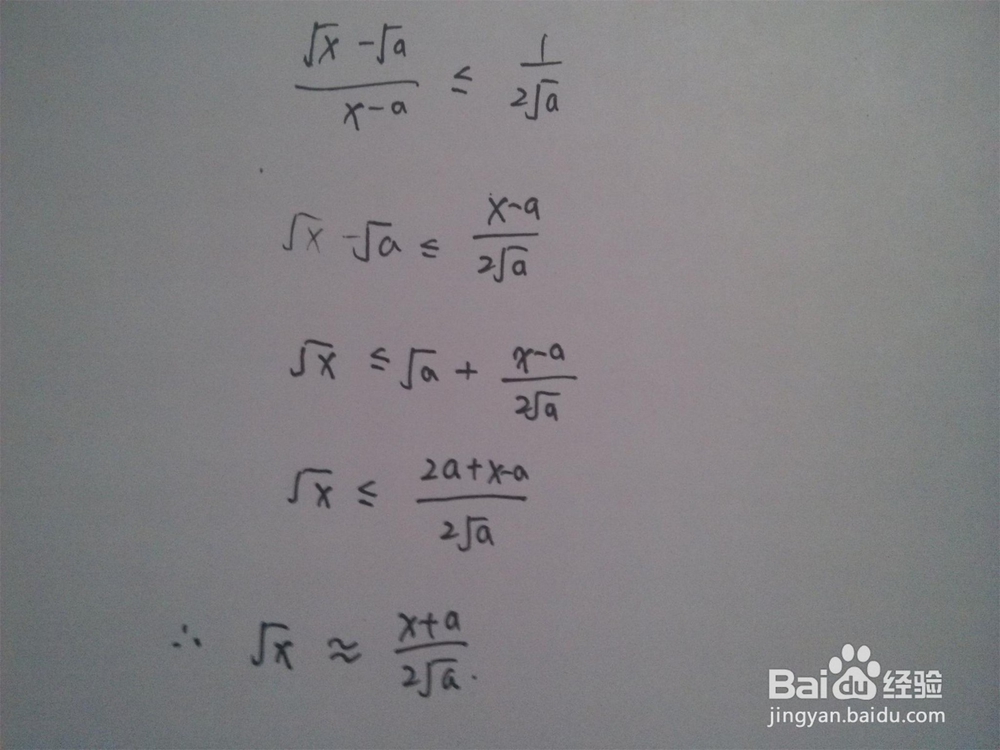 (√x - √a)/(x-a) ≤ 1/(2√a)
√x - √a ≤ (x-a)/(2√a)
√x ≤ √a + (x-a)/(2√a)
√x ≤ (2a+x-a)/(2√a)
∴ √x ≈ (x+a)/(2√a).
Baidu经验
jingyan.baidu.com